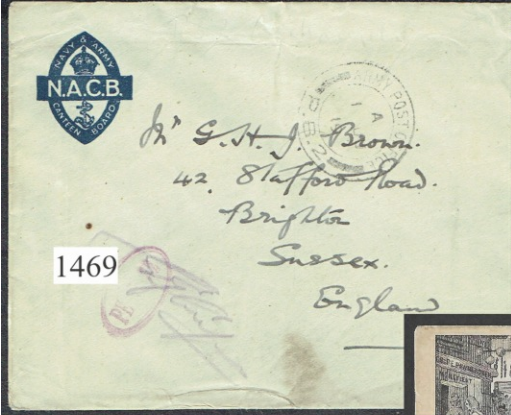 NAVY & ARMY
N.A.C.B.
CANTEEN BOARD
ARMY POST OFFICE
Mr G. H. J. Brown.
42, Stafford Road.
Brighton
Sussex.
England
1469